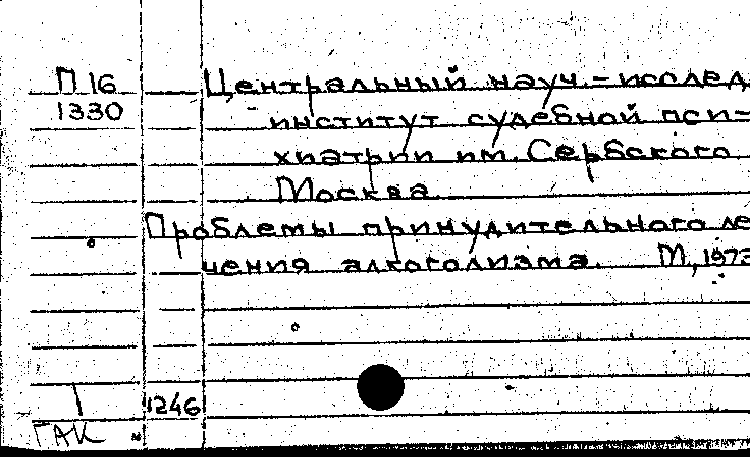 П 16 Центральный науч.-исслед.
1330 институт судебной пси-
хиатрии им. Сербского
Москва
Проблемы принудительного ле
чения алкоголизма. М, 1973
1 1246
ГАК